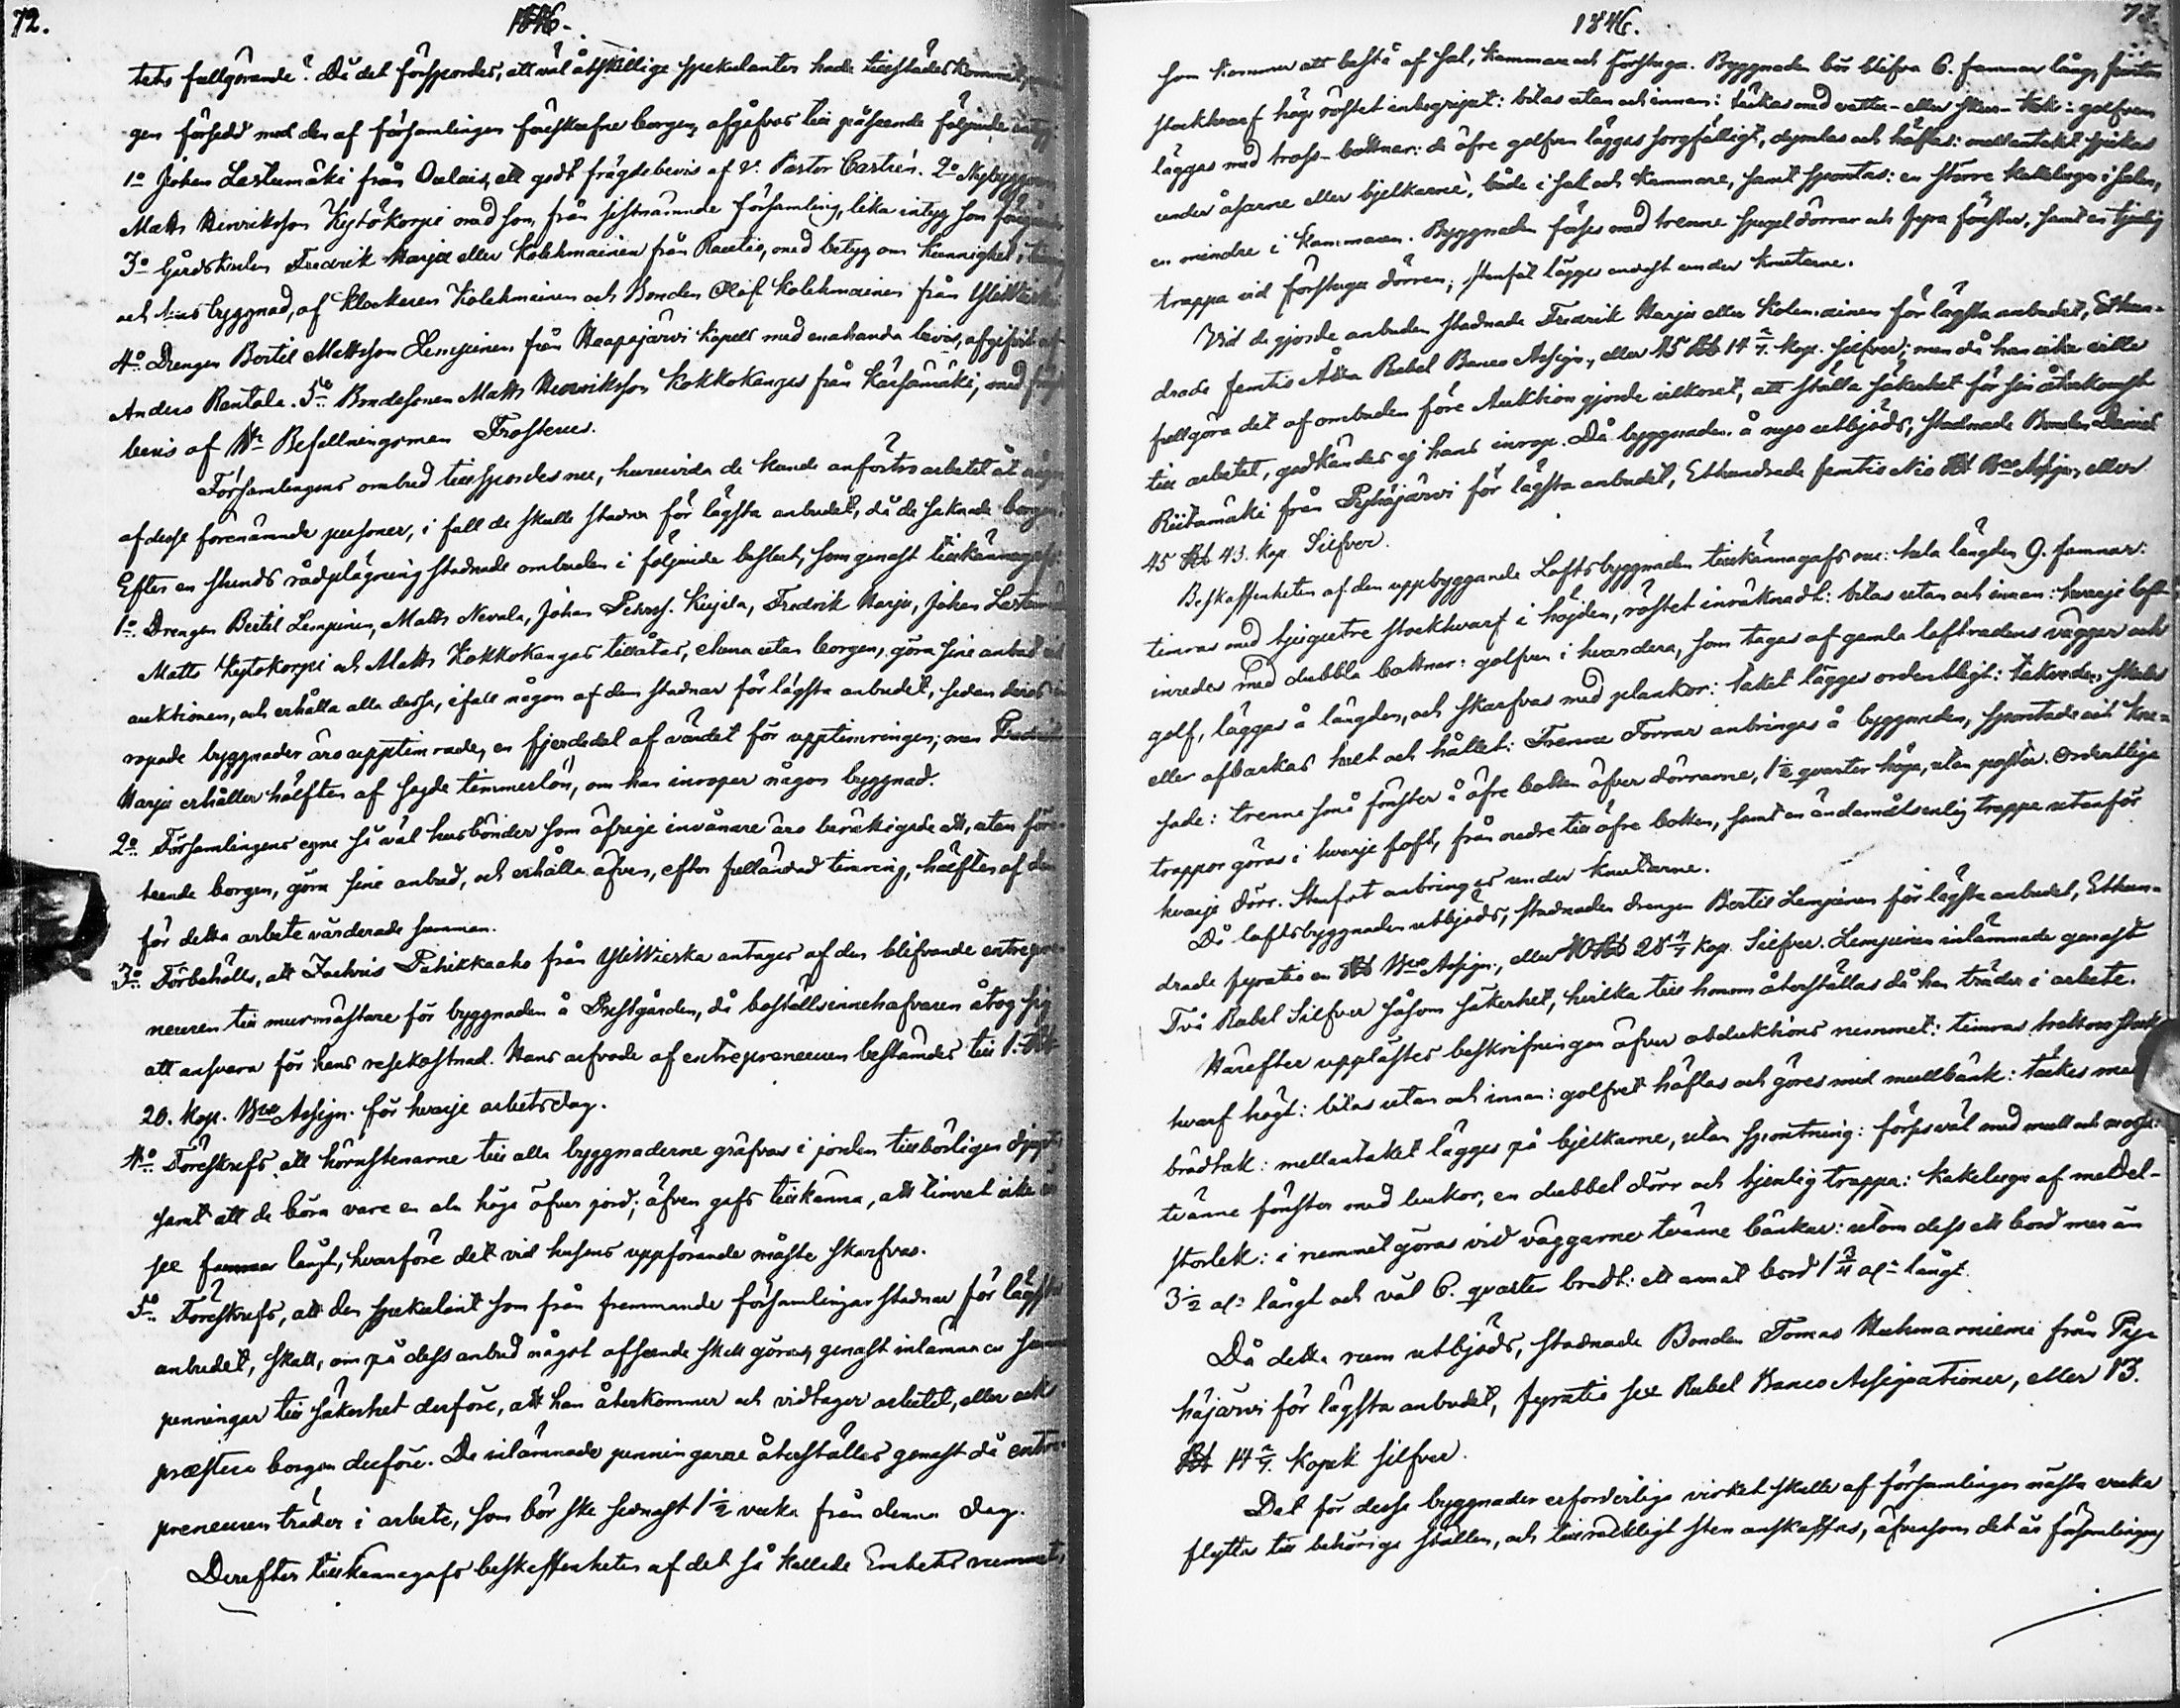 72.
1846.
tets fullgörande? Då det förspordes, att väl åtskillige spekulanter hade tillstädes kommit,
gen försedd med den af församlingen föreskrefne borgen, afgåfvos till påseende följande intyg:
1o Johan Lastumäki från Oulais, ett godt frägdebevis af V. Pastor Castrén. 2o Nybyggaren
Matts Henriksson Kytökorpi med son, från sistnämnde församling, lika intyg som föregående
3o Gårdskarlen Fredrik Harju eller Kolehmainen från Rautio, med betyg om kunnighet i
och hus byggnad, af klockaren Kolehmainen och Bonden Olof Kolehmainen från YliWieska
4o. Drengen Bertil Mattsson Lempinen från Haapajärvi Kapell med enahanda bevis, afgifvit af
Anders Rantala. 5o Bondesonen Matts Henriksson Kokkokangas från Kärsämäki, med
bevis af Hr Befallningsman Frosterus.
Församlingens ombud tillspordes nu, huruvida de kunde anförtro arbetet åt någon
af desse förenämnde personer, i fall de skulle stadna för lägsta anbudet, då de saknade borgen?
Efter en stunds rådplägning stadnade ombuden i följande beslut, som genast tillkännagafs:
1o. Drengen Bertil Lempinen, Matts Nevala, Johan Petterss. Kujala, Fredrik Harju, Johan Lastumäki
Matts Kytökorpi och Matts Kokkokangas tillåtas, ehuru utan borgen, göra sine anbud vid
auktionen, och erhålla alla dessa, ifall någon af dem stadnar för lägsta anbudet, sedan deras in
ropade byggnader äro upptimrade, en fjerdedel af värdet för upptimringen; men Fredrik
Harju erhåller hälften af sagde timmerlön, om han inropar någon byggnad.
2o. Församlingens egne så väl husbönder som öfrige invånare äro berättigade att, utan före-
teende borgen, göra sine anbud, och erhålla äfven, efter fulländad timring, hälften af den
för detta arbete värderade summan.
3o. Förbehölls, att Zachris Pahikkaaho från YliWieska antages af den blifvande entrepre-
neuren till murmästare för byggnaden å Prestgården, då boställsinnehafvaren åtog sig
att ansvara för hans resekostnad. Hans arfvode af entrepreneuren bestämdes till 1. Rbl
20. Kop. Bco Assign. för hvarje arbetsdag.
4o. Föreskrefs att hörnstenarne till alla byggnaderne gräfvas i jorden till börligen djupt
samt att de böra vara en aln höga öfver jord; äfven gafs tillkänna, att timret icke är
sex famnar långt, hvarföre det vid husens uppförande måste skarfvas.
5o. Föreskrefs, att den spekulant som från främmande församlingar stadnar för lägsta
anbudet, skall, om på dess anbud något afseende skall göras, genast inlämna en summa
penningar till säkerhet derföre, att han återkommer och vidtager arbetet, eller ock
præstera borgen derföre. De inlämnade penningarne återställes genast då entre-
preneuren träder i arbete, som bör ske sednast 1 1/2 vecka från denna dag.
Derefter tillkännagafs beskaffenheten af det så kallade Embets rummet,
73.
1846.
som kommer att bestå af sal, kammare och förstuga. Byggnaden bör blifva 6. famnar lång, femton
stockhvarf hög, röstet inbegripet: bilas utan och innan: täckas med vatten- eller skur-tak: golfven
läggas med tross-bottnar: de öfre golfven läggas sorgfälligt, dymlas och höflas: mellantaket spikas
under åsarne eller bjelkarne, både i sal och kammare, samt spontas: en större kakelugn i salen,
en mindre i kammaren. Byggnaden förses med trenne spegel dörrar och fyra fönster, samt en tjenlig
trappa vid förstuga dörren; stenfot lägges endast under knutarne.
Vid de gjorde anbuden stadnade Fredrik Harju eller Kolemainen för lägsta anbudet, Ethun-
drade femtio Åtta Rubel Banco Assign., eller 45 Rbl 14 2/7. Kop. silfver; men då han icke ville
fullgöra det af ombuden före Auktion gjorde vilkoret, att ställa säkerhet för sin återkomst
till arbetet, godkändes ej hans inrop. Då byggnaden å nyo utbjöds, stadnade Bonden Daniel
Riitamäki från Pyhäjärvi för lägsta anbudet, Ethundrade femtio Nio Rbl Bco Assign, eller
45 Rbl 43. Kop. Silfver.
Beskaffenheten af den uppbyggande Loftsbyggnaden tillkännagafs nu: hela längden 9. famnar:
timras med tjugutre stockhvarf i höjden, röstet inräknadt: bilas utan och innan: hvarje loft
inredes med dubbla bottnar: golfven i hvardera, som tages af gamla loftradens väggar och
golf, läggas å längden, och skarfvas med plankor: taket lägges ordentligt: takveden skalas
eller afbarkas helt och hållet: Trenne dörrar anbringas å byggnaden, spontade och kne-
sade: trenne små fönster å öfre botten öfver dörrarne, 1 1/2 qvarter höga, utan poster. Ordentliga
trappor göras i hvarje loft, från nedre till öfre botten, samt en ändamålsenlig trappa utanför
hvarje dörr. Stenfot anbringas under knutarne.
Då loftsbyggnaden utbjöds, stadnade drengen Bertil Lempinen för lägsta anbudet, Ethun-
drade fyratio en Rbl Bco Assign., eller 40 Rbl 28 4/7 Kop. Silfver. Lempinen inlämnade genast
Två Rubel Silfver såsom säkerhet, hvilka till honom återställas då han träder i arbete.
Härefter upplästes beskrifningen öfver obduktions rummet: timras tretton stock
hvarf högt: bilas utan och innan: golfvet höflas och göres med mullbänk: täckes med
brädtak: mellantaket lägges på bjelkarne, utan spontning: förses väl med mull och mossa:
tvänne fönster med luckor, en dubbel dörr och tjenlig trappa: kakelugn af medel-
storlek: i rummet göras vid väggarne tvänne bänkar: utom dess ett bord mer än
3 1/2 aln långt och väl 6. qvarter bredt: ett annat bord 1 3/4 aln långt.
Då detta rum utbjöds, stadnade Bonden Tomas Huhmarniemi från Py-
häjärvi för lägsta anbudet, fyratio sex Rubel Banco Assignationer, eller 13.
Rbl 14 2/7. Kopek silfver.
Det för desse byggnader erforderliga virket skulle af församlingen nästa vecka
flyttas till behöriga ställen, och tillräckligt sten anskaffas, äfvensom det är församlingens